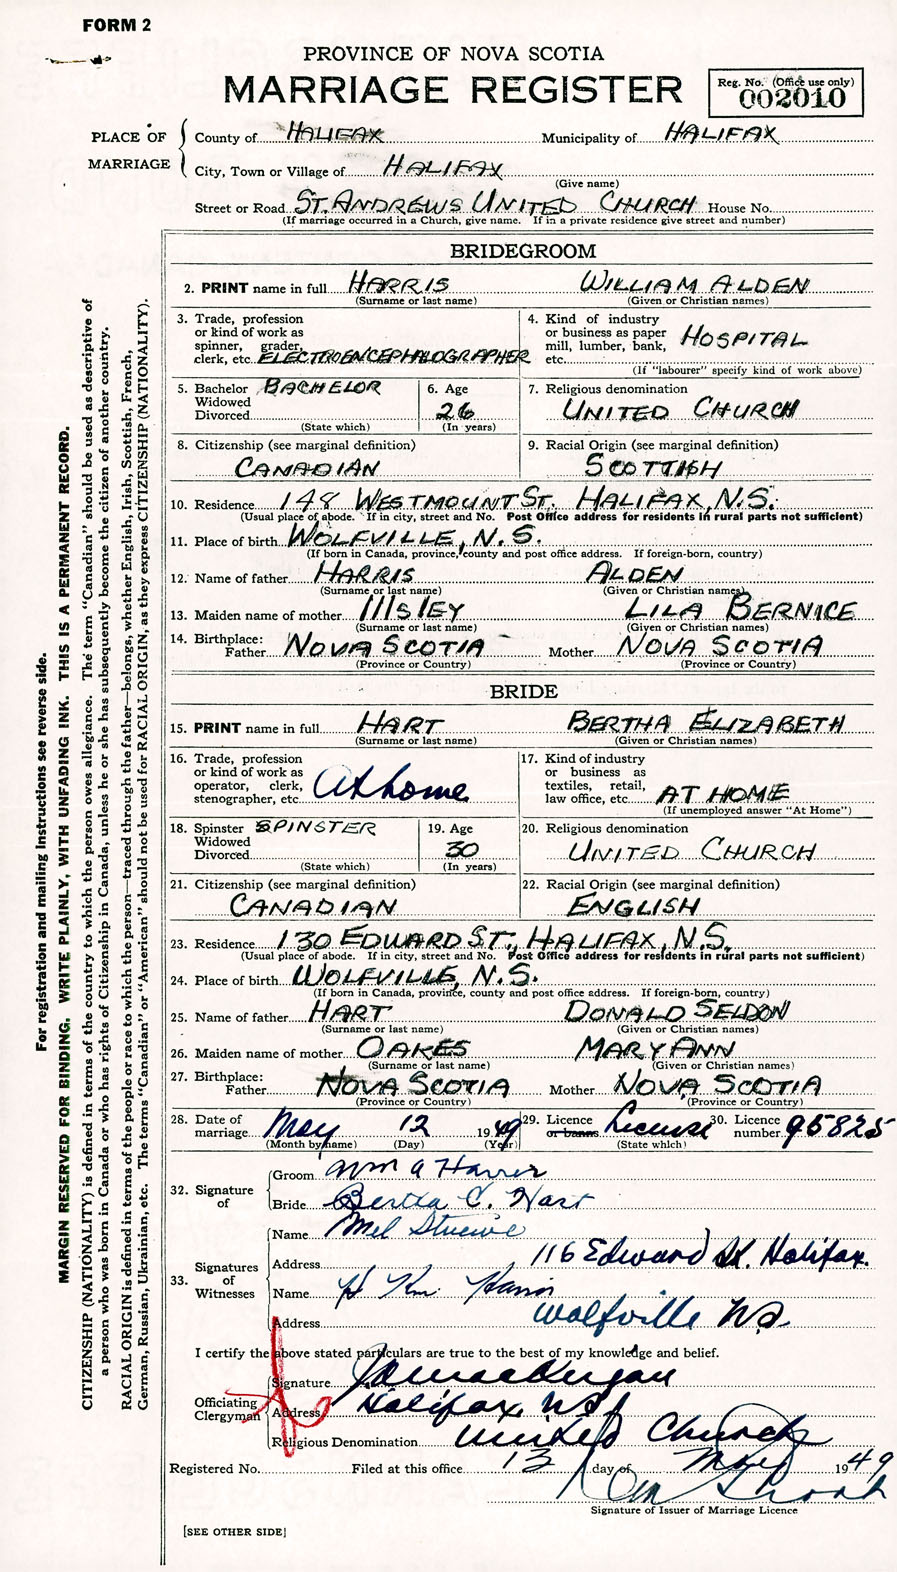 FORM 2
PROVINCE OF NOVA SCOTIA
MARRIAGE REGISTER
Reg. No. (Office use only)
002010
PLACE OF MARRIAGE
County of HALIFAX Municipality of HALIFAX
City, Town or Village of HALIFAX
(Give name)
Street or Road ST. ANDREWS UNITED CHURCH House No.
(If marriage occurred in a Church, give name. If in a private residence give street and number)
BRIDEGROOM
2. PRINT name in full HARRIS WILLIAM ALDEN
(Surname or last name) (Given or Christian names)
3. Trade, profession or kind of work as spinner, grader, clerk, etc. ELECTROENCEPHALOGRAPHER
4. Kind of industry or business as paper mill, lumber, bank, etc. HOSPITAL
(If "labourer" specify kind of work above)
5. Bachelor Widowed Divorced BACHELOR
(State which)
6. Age 26
(In years)
7. Religious denomination
UNITED CHURCH
8. Citizenship (see marginal definition)
CANADIAN
9. Racial Origin (see marginal definition)
SCOTTISH
10. Residence 148 WESTMOUNT ST. HALIFAX, N.S.
(Usual place of abode. If in city, street and No. Post Office address for residents in rural parts not sufficient)
11. Place of birth WOLFVILLE, N.S.
(If born in Canada, province, county and post office address. If foreign-born, country)
12. Name of father HARRIS ALDEN
(Surname or last name) (Given or Christian names)
13. Maiden name of mother IllslEY LILA BERNICE
(Surname or last name) (Given or Christian names)
14. Birthplace: Father NOVA SCOTIA Mother NOVA SCOTIA
(Province or Country) (Province or Country)
BRIDE
15. PRINT name in full HART BERTHA ELIZABETH
(Surname or last name) (Given or Christian names)
16. Trade, profession or kind of work as operator, clerk, stenographer, etc. At home
17. Kind of industry or business as textiles, retail, law office, etc. AT HOME
(If unemployed answer "At Home")
18. Spinster Widowed Divorced SPINSTER
(State which)
19. Age 30
(In years)
20. Religious denomination
UNITED CHURCH
21. Citizenship (see marginal definition)
CANADIAN
22. Racial Origin (see marginal definition)
ENGLISH
23. Residence 130 EDWARD ST., HALIFAX, N.S.
(Usual place of abode. If in city, street and No. Post Office address for residents in rural parts not sufficient)
24. Place of birth WOLFVILLE, N.S.
(If born in Canada, province, county and post office address. If foreign-born, country)
25. Name of father HART DONALD SELDON
(Surname or last name) (Given or Christian names)
26. Maiden name of mother OAKES MARY ANN
(Surname or last name) (Given or Christian names)
27. Birthplace: Father NOVA SCOTIA Mother NOVA SCOTIA
(Province or Country) (Province or Country)
28. Date of marriage May 12 1949
(Month by name) (Day) (Year)
29. Licence or banns License
(State which)
30. Licence number 95825
32. Signature of
Groom Wm A Harris
Bride Bertha E. Hart
33. Signatures of Witnesses
Name Mel
Address 116 Edward St. Halifax.
Name H Harris
Address Wolfville N.S.
I certify the above stated particulars are true to the best of my knowledge and belief.
Officiating Clergyman
Signature
Address Halifax, N.S.
Religious Denomination United Church
Registered No. Filed at this office 13 day of May 1949
Signature of Issuer of Marriage Licence
[SEE OTHER SIDE]
For registration and mailing instructions see reverse side.
MARGIN RESERVED FOR BINDING. WRITE PLAINLY, WITH UNFADING INK. THIS IS A PERMANENT RECORD.
CITIZENSHIP (NATIONALITY) is defined in terms of the country to which the person owes allegiance. The term "Canadian" should be used as descriptive of
a person who was born in Canada or who has rights of Citizenship in Canada, unless he or she has subsequently become the citizen of another country.
RACIAL ORIGIN is defined in terms of the people or race to which the person—traced through the father—belongs, whether English, Irish, Scottish, French,
German, Russian, Ukrainian, etc. The terms "Canadian" or "American" should not be used for RACIAL ORIGIN, as they express CITIZENSHIP (NATIONALITY).